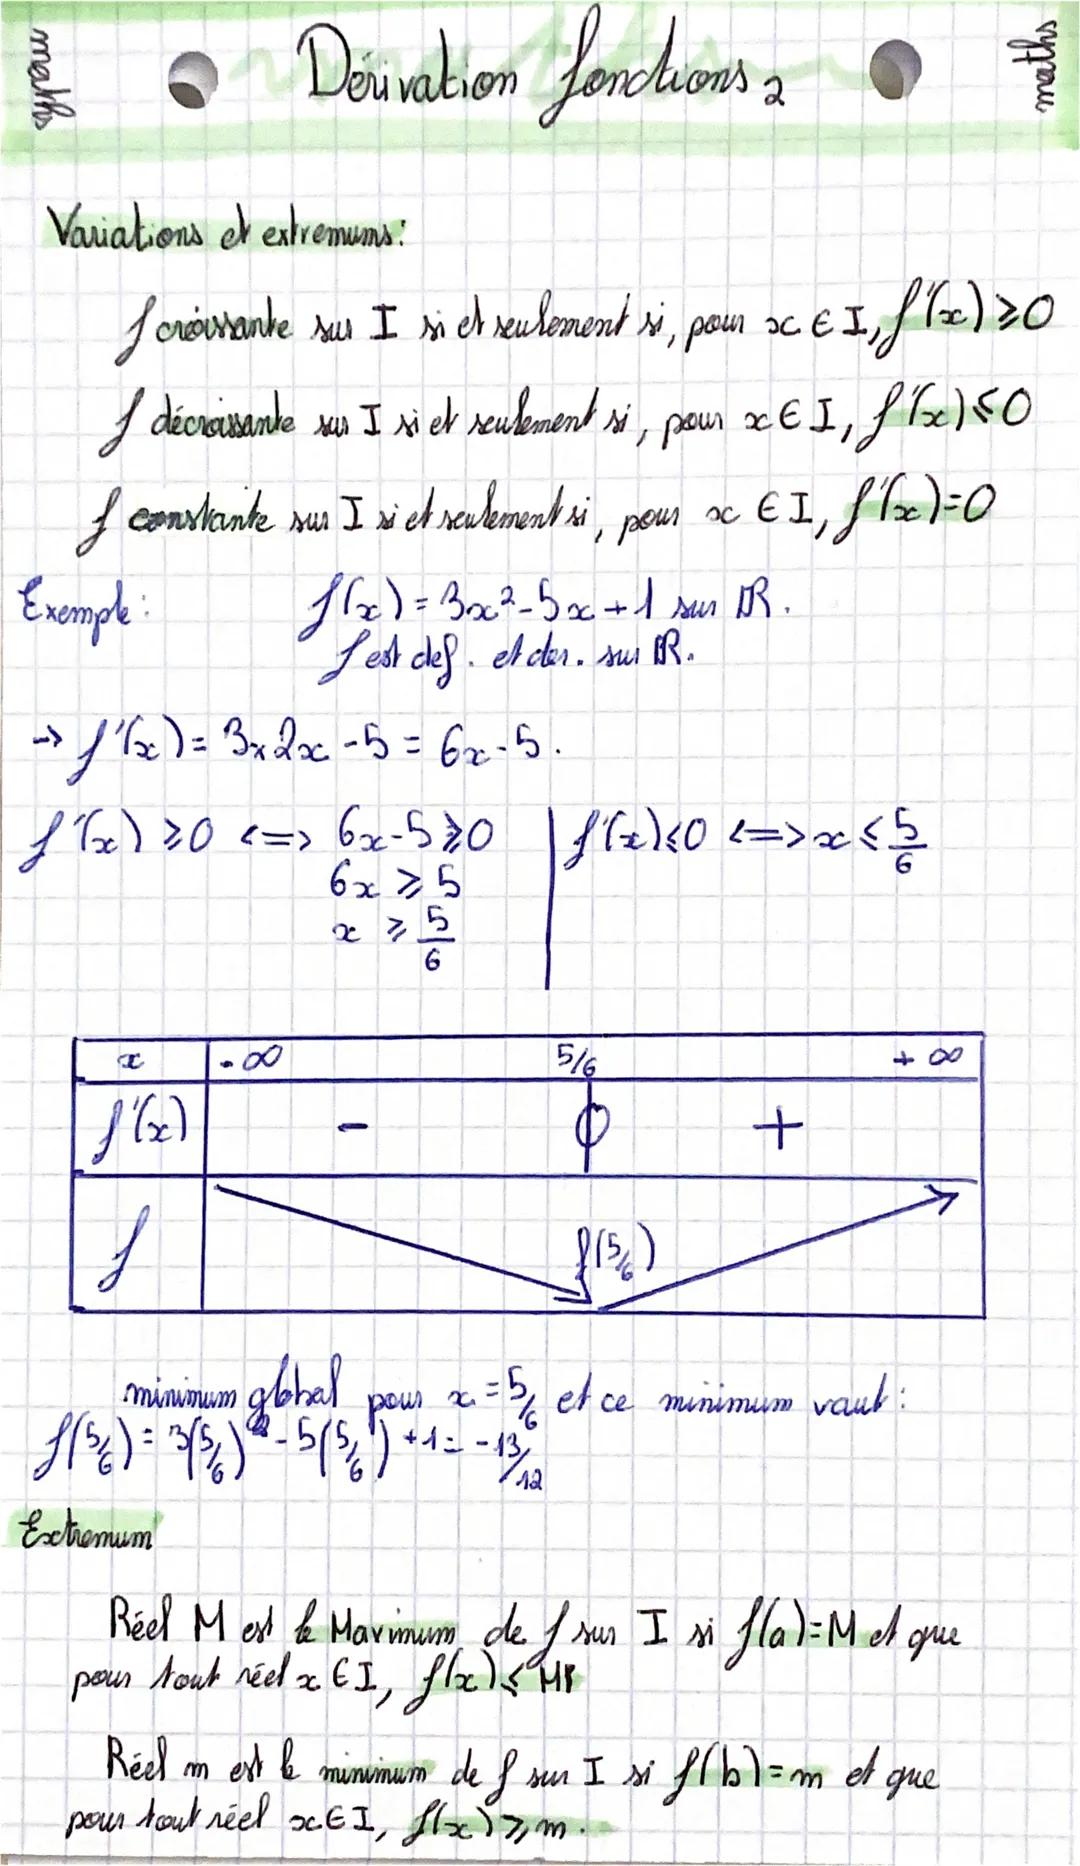 maths
Dérivation fonctions 2
maths
Variations et extremums:
f croissante sur I si et seulement si, pour x ∈ I, f'(x) ⩾ 0
f décroissante sur I si et seulement si, pour x ∈ I, f'(x) ⩽ 0
f constante sur I si et seulement si, pour x ∈ I, f'(x)=0
Exemple: f(x) = 3x²-5x+1 sur ℝ.
f est def. et der. sur ℝ.
→ f'(x) = 3×2x -5 = 6x-5.
f'(x) ⩾ 0 <=> 6x-5 ⩾ 0 | f'(x) ⩽ 0 <=> x ⩽ 5/6
6x ⩾ 5
x ⩾ 5/6
x -∞ 5/6 +∞
f'(x) - 0 +
f f(5/6)
minimum global pour x = 5/6 et ce minimum vaut:
f(5/6) = 3(5/6)² - 5(5/6) +1 = -13/12
Extremum
Réel M est le Maximum de f sur I si f(a)=M et que
pour tout réel x ∈ I, f(x) ⩽ M
Réel m est le minimum de f sur I si f(b)=m et que
pour tout réel x ∈ I, f(x) ⩾ m.